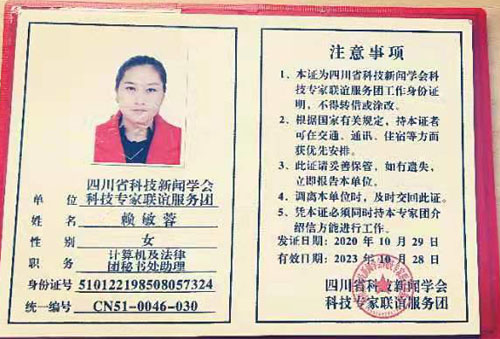 四川省科技新闻学会
单位 科技专家联谊服务团
姓名 赖敏蓉
性别 女
计算机及法律
职务 团秘书处助理
身份证号 510122198508057324
统一编号 CN51-0046-030
注意事项
1、本证为四川省科技新闻学会科
技专家联谊服务团工作身份证
明，不得转借或涂改。
2、根据国家有关规定，持本证者
可在交通、通讯、住宿等方面
获优先安排。
3、此证请妥善保管，如有遗失，
立即报告本单位。
4、调离本单位时，及时交回此证。
5、凭本证必须同时持本专家团介
绍信方能进行工作。
发证日期：2020年10月29日
有效日期：2023年10月28日
四川省科技新闻学会
科技专家联谊服务团